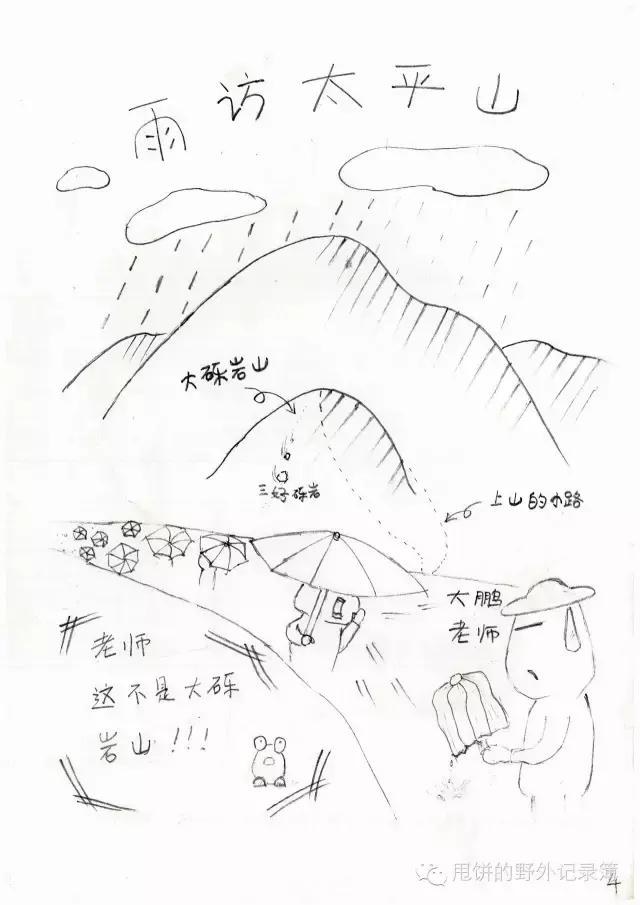 雨访太平山
大砾岩山
三好砾岩
上山的小路
大鹏
老师
老师
这不是大砾
岩山!!!
甩饼的野外记录簿
4